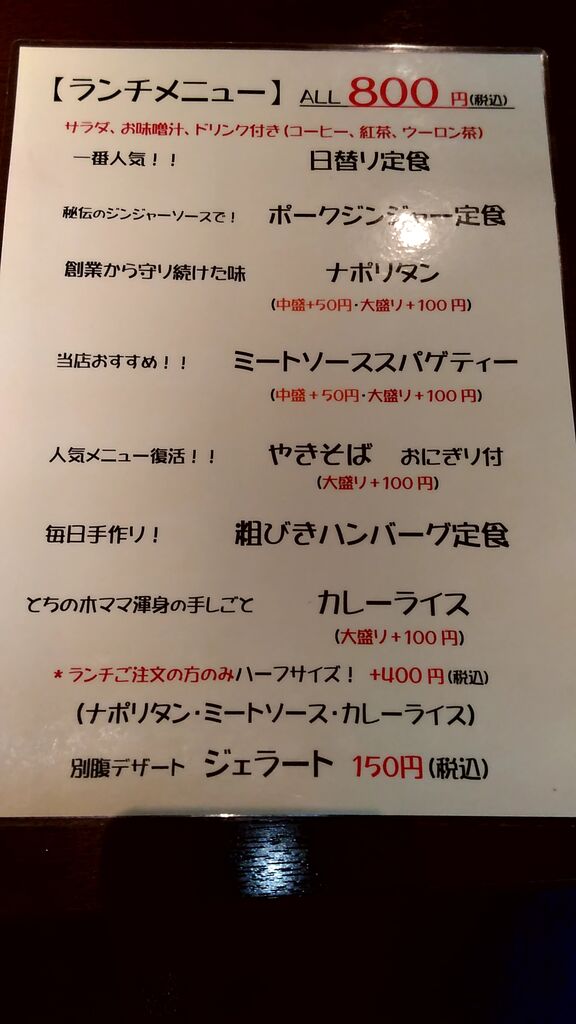 【ランチメニュー】 ALL 800 円(税込)
サラダ、お味噌汁、ドリンク付き(コーヒー、紅茶、ウーロン茶)
一番人気！！ 日替り定食
秘伝のジンジャーソースで！ ポークジンジャー定食
創業から守り続けた味 ナポリタン
(中盛+50円・大盛り+100円)
当店おすすめ！！ ミートソーススパゲティー
(中盛+50円・大盛り+100円)
人気メニュー復活！！ やきそば おにぎり付
(大盛り+100円)
毎日手作り！ 粗びきハンバーグ定食
とちの木ママ渾身の手しごと カレーライス
(大盛り+100円)
*ランチご注文の方のみハーフサイズ！ +400円(税込)
(ナポリタン・ミートソース・カレーライス)
別腹デザート ジェラート 150円(税込)